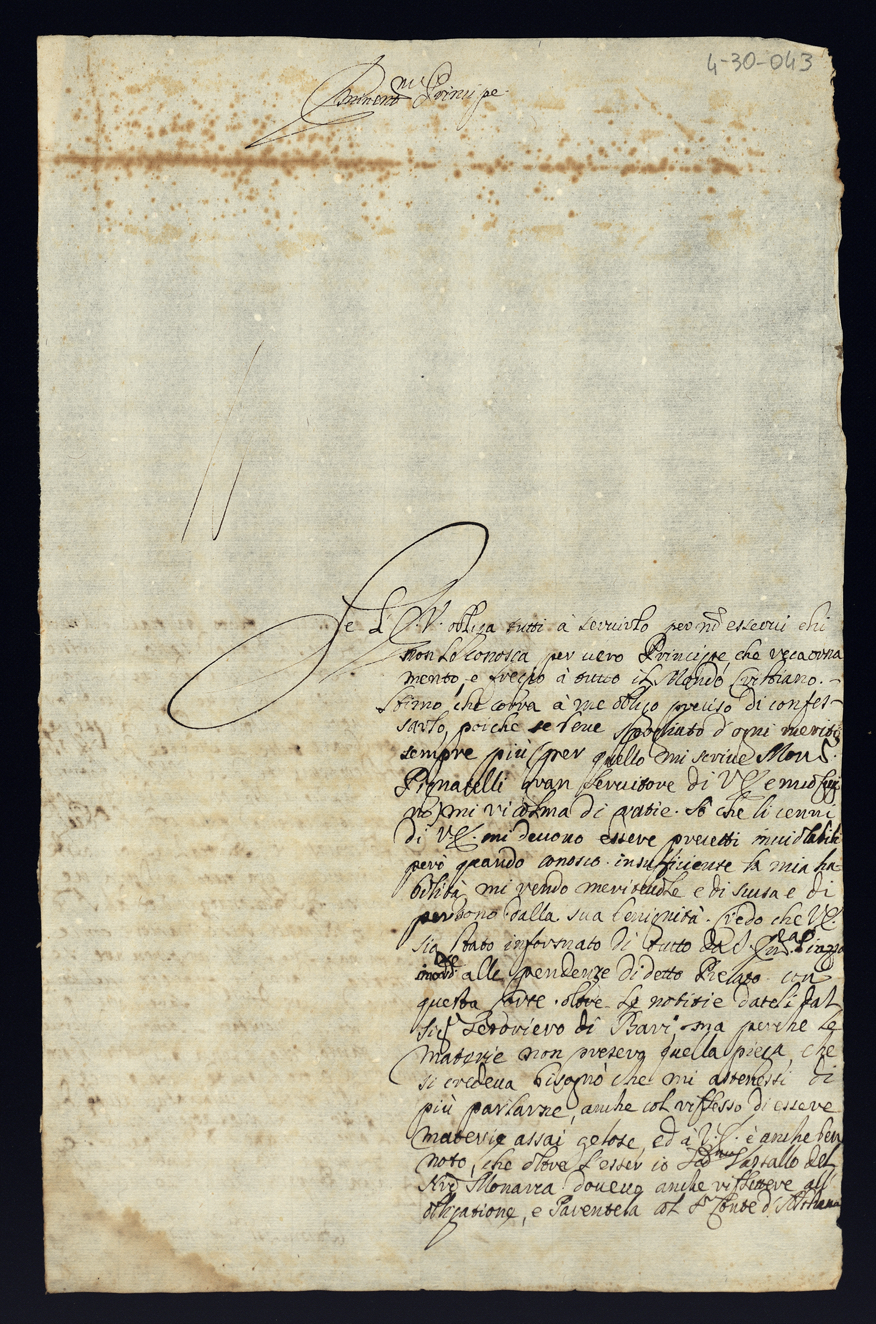 4-30-043
Eminentmo Principe
Se L'E.V. obliga tutti à servirlo per nõ esservi chi
non Lo Conosca per vero Principe, che reca orna
mento, e freggio à tutto il Mondo Cristiano.
Stimo, che corra à me obligo preciso di confes-
sarlo, poiche se bene spogliato d'ogni merito
sempre più (per quello mi scrive Mons.r
Pignatelli gran servitore di V.E. e mio
mi ricolma di gratie. Sò che li cenni
di V.E. mi devono essere precetti inviolabili
però quando conosco insufficiente la mia ha-
bilità mi rendo meritevole e di scusa e di
perdono dalla sua benignità. Credo che V.E.
sia stato informato di tutto dal
alle pendenze di detto Prelato con
questa Corte oltre le notitie dateli dal
Sig.r Ferdviero di Bari, ma perche le
materie non presero quella piega, che
si credeva bisognò che mi astenessi di
più parlarne, anche col riflesso di essere
materie assai gelose, ed à V.E. è anche ben
noto, che oltre l'esser io Vassallo del
Nrõ Monarca dovevo anche riflettere all'
obligatione, e Parentela col Sr Conte d'Althann